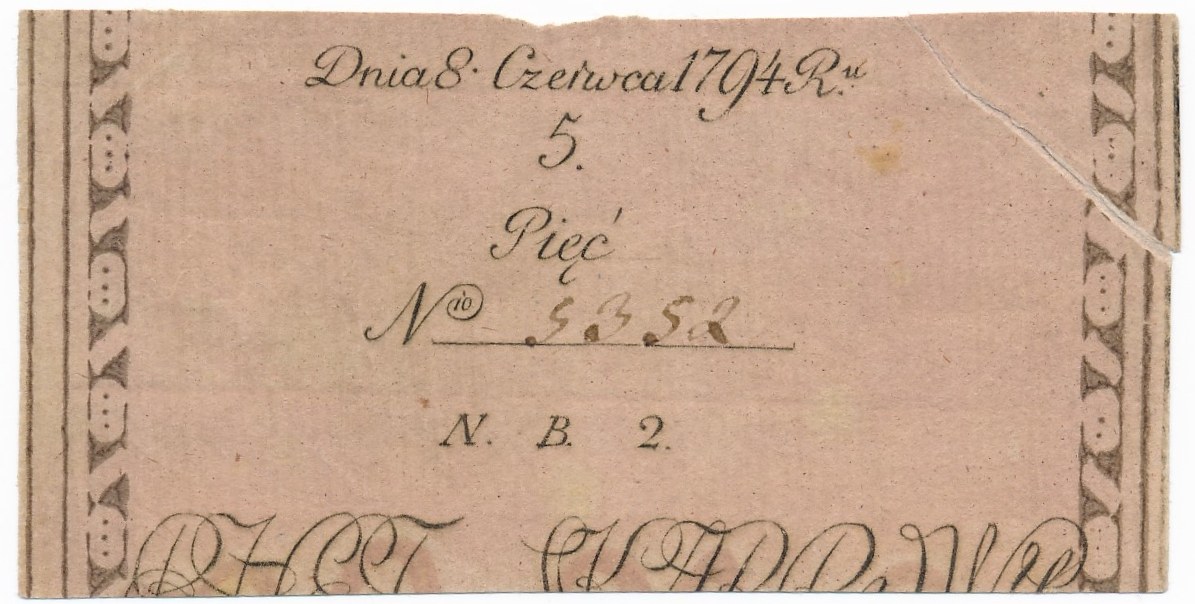 Dnia 8. Czerwca 1794 R.u
5.
Pięć
N.io 5352
N. B. 2.